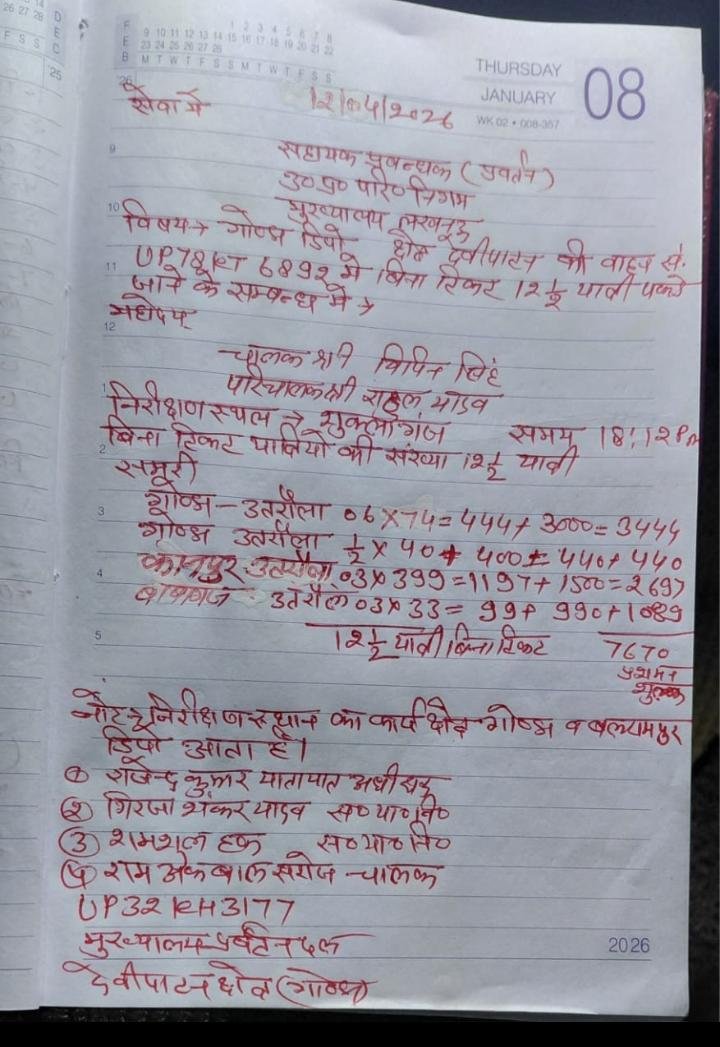 26 27 28
F S S
D E C
'25
F E B
'26
1 2 3 4 5 6 7 8
9 10 11 12 13 14 15 16 17 18 19 20 21 22
23 24 25 26 27 28
M T W T F S S M T W T F S S
THURSDAY
JANUARY
08
WK 02 • 008-357
सेवा मे 12/04/2026
9
सहायक प्रबन्धक (प्रवर्तन)
उ०प्र० परि० निगम
10
मुख्यालय लखनऊ
विषय→ गोण्डा डिपो क्षेत्र देवीपाटन की वाहन सं.
11
UP78KT 6892 मे बिना टिकट 12 1/2 यात्री पकड़े
जाने के सम्बन्ध मे →
महोदय
12
चालक श्री विपिन सिंह
परिचालक श्री राहुल यादव
1
निरीक्षण स्थल → शुक्लागंज समय 18:12 Pm
बिना टिकट यात्रियो की संख्या 12 1/2 यात्री
2
3
गोण्डा - उतरौला 06 X 74 = 444 + 3000 = 3444
गोण्डा उतरौला 1/2 X 40 + 400 = 440 + 440
4
कानपुर उतरौला 03 X 399 = 1197 + 1500 = 2697
उतरौला 03 X 33 = 99 + 990 + 1089
5
12 1/2 यात्री बिना टिकट 7670
प्रशमन
शुल्क
नोट→ निरीक्षण स्थान का कार्य क्षेत्र गोण्डा व बलरामपुर
डिपो आता है।
① राजेन्द्र कुमार यातायात अधीक्षक
② गिरजा शंकर यादव स०या०नि०
③ शमशुल हक स०या०नि०
④ राम अकबाल सरोज चालक
UP32KH3177
मुख्यालय प्रर्वतन दल
देवीपाटन क्षेत्र (गोण्डा)
2026